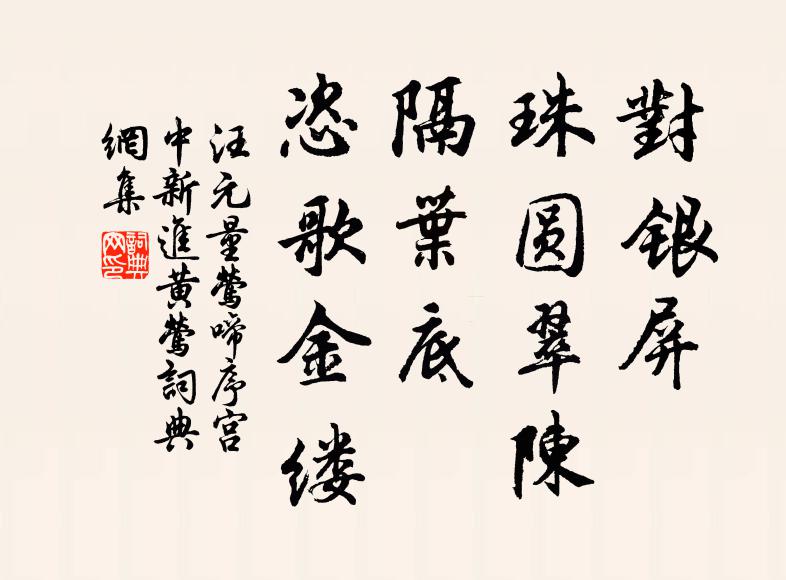 對銀屏
珠圆翠陳
隔葉底
恣歌金缕
汪元量鶯啼序宫
中新進黄鶯詞典
網集
詞典
网印